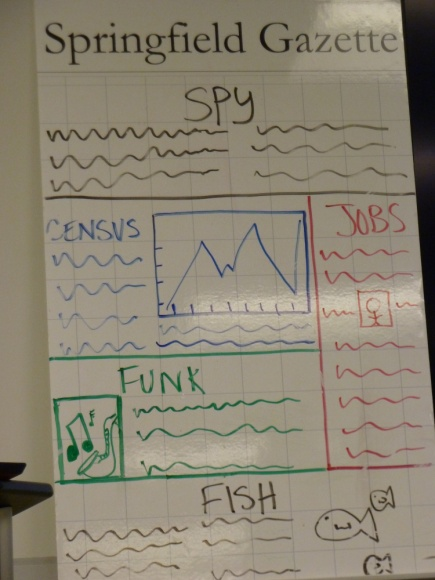 Springfield Gazette
SPY
CENSUS
JOBS
FUNK
FISH